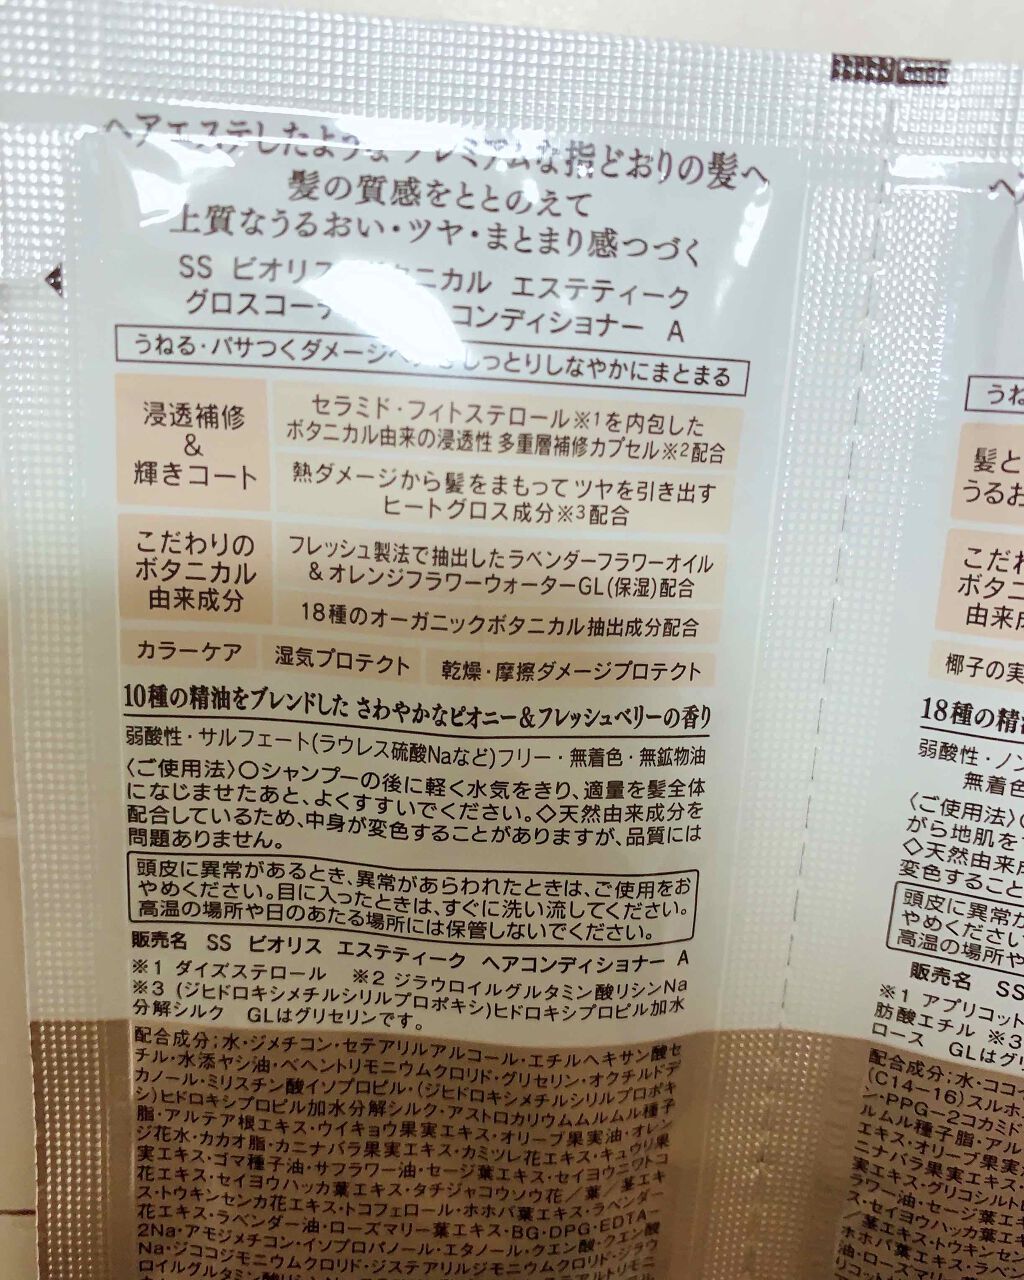 ヘアエステしたような プレミアムな指どおりの髪へ
髪の質感をととのえて
上質なうるおい・ツヤ・まとまり感つづく
SS ビオリス ニカル エステティーク
グロスコー コンディショナー A
うねる・パサつくダメージ しっとりしなやかにまとまる
浸透補修
&
輝きコート
セラミド・フィトステロール※1を内包した
ボタニカル由来の浸透性 多重層補修カプセル※2配合
熱ダメージから髪をまもって ツヤを引き出す
ヒートグロス成分※3配合
こだわりの
ボタニカル
由来成分
フレッシュ製法で抽出したラベンダーフラワーオイル
&オレンジフラワーウォーターGL(保湿)配合
18種のオーガニックボタニカル抽出成分配合
カラーケア 湿気プロテクト 乾燥・摩擦ダメージプロテクト
10種の精油をブレンドした さわやかなピオニー&フレッシュベリーの香り
弱酸性・サルフェート(ラウレス硫酸Naなど)フリー・無着色・無鉱物油
〈ご使用法〉○シャンプーの後に軽く水気をきり、適量を髪全体
になじませたあと、よくすすいでください。◇天然由来成分を
配合しているため、中身が変色することがありますが、品質には
問題ありません。
頭皮に異常があるとき、異常があらわれたときは、ご使用をお
やめください。目に入ったときは、すぐに洗い流してください。
高温の場所や日のあたる場所には保管しないでください。
販売名 SS ビオリス エステティーク ヘアコンディショナー A
※1 ダイズステロール ※2 ジラウロイルグルタミン酸リシンNa
※3 (ジヒドロキシメチルシリルプロポキシ)ヒドロキシプロピル加水
分解シルク GLはグリセリンです。
配合成分;水・ジメチコン・セテアリルアルコール・エチルヘキサン酸セ
チル・水添ヤシ油・ベヘントリモニウムクロリド・グリセリン・オクチルドデ
カノール・ミリスチン酸イソプロピル・(ジヒドロキシメチルシリルプロポキ
シ)ヒドロキシプロピル加水分解シルク・アストロカリウムムルムル種子
脂・アルテア根エキス・ウイキョウ果実エキス・オリーブ果実油・オレン
ジ花水・カカオ脂・カニナバラ果実エキス・カミツレ花エキス・キュウリ果
実エキス・ゴマ種子油・サフラワー油・セージ葉エキス・セイヨウニワトコ
花エキス・セイヨウハッカ葉エキス・タチジャコウソウ花/葉/茎エキ
ス・トウキンセンカ花エキス・トコフェロール・ホホバ葉エキス・ラベンダー
花エキス・ラベンダー油・ローズマリー葉エキス・BG・DPG・EDTA-
2Na・アモジメチコン・イソプロパノール・エタノール・クエン酸・クエン酸
Na・ジココジモニウムクロリド・ジステアリルジモニウムクロリド・ジラウ
ロイルグルタミン酸リシンNa
うね
髪と
うるお
こだわ
ボタニ
由来成
椰子の実
18種の精
弱酸性・ノン
無着色
〈ご使用法〉○
がら地肌を
◇天然由来成
変色すること
頭皮に異常が
やめください
高温の場所や
販売名 SS
※1 アプリコット
肪酸エチル ※3
ロース GLはグリ
配合成分;水・ココイ
(C14-16)スルホ
ン・PPG-2コカミド
ルムル種子脂・アル
エキス・オリーブ果実
ニナバラ果実エキス
実エキス・グリコシルト
ラワー油・セージ葉エ
ス・セイヨウハッカ葉エ
/茎エキス・トウキンセン
ホホバ葉エキス・ラベン
油・ローズマリ